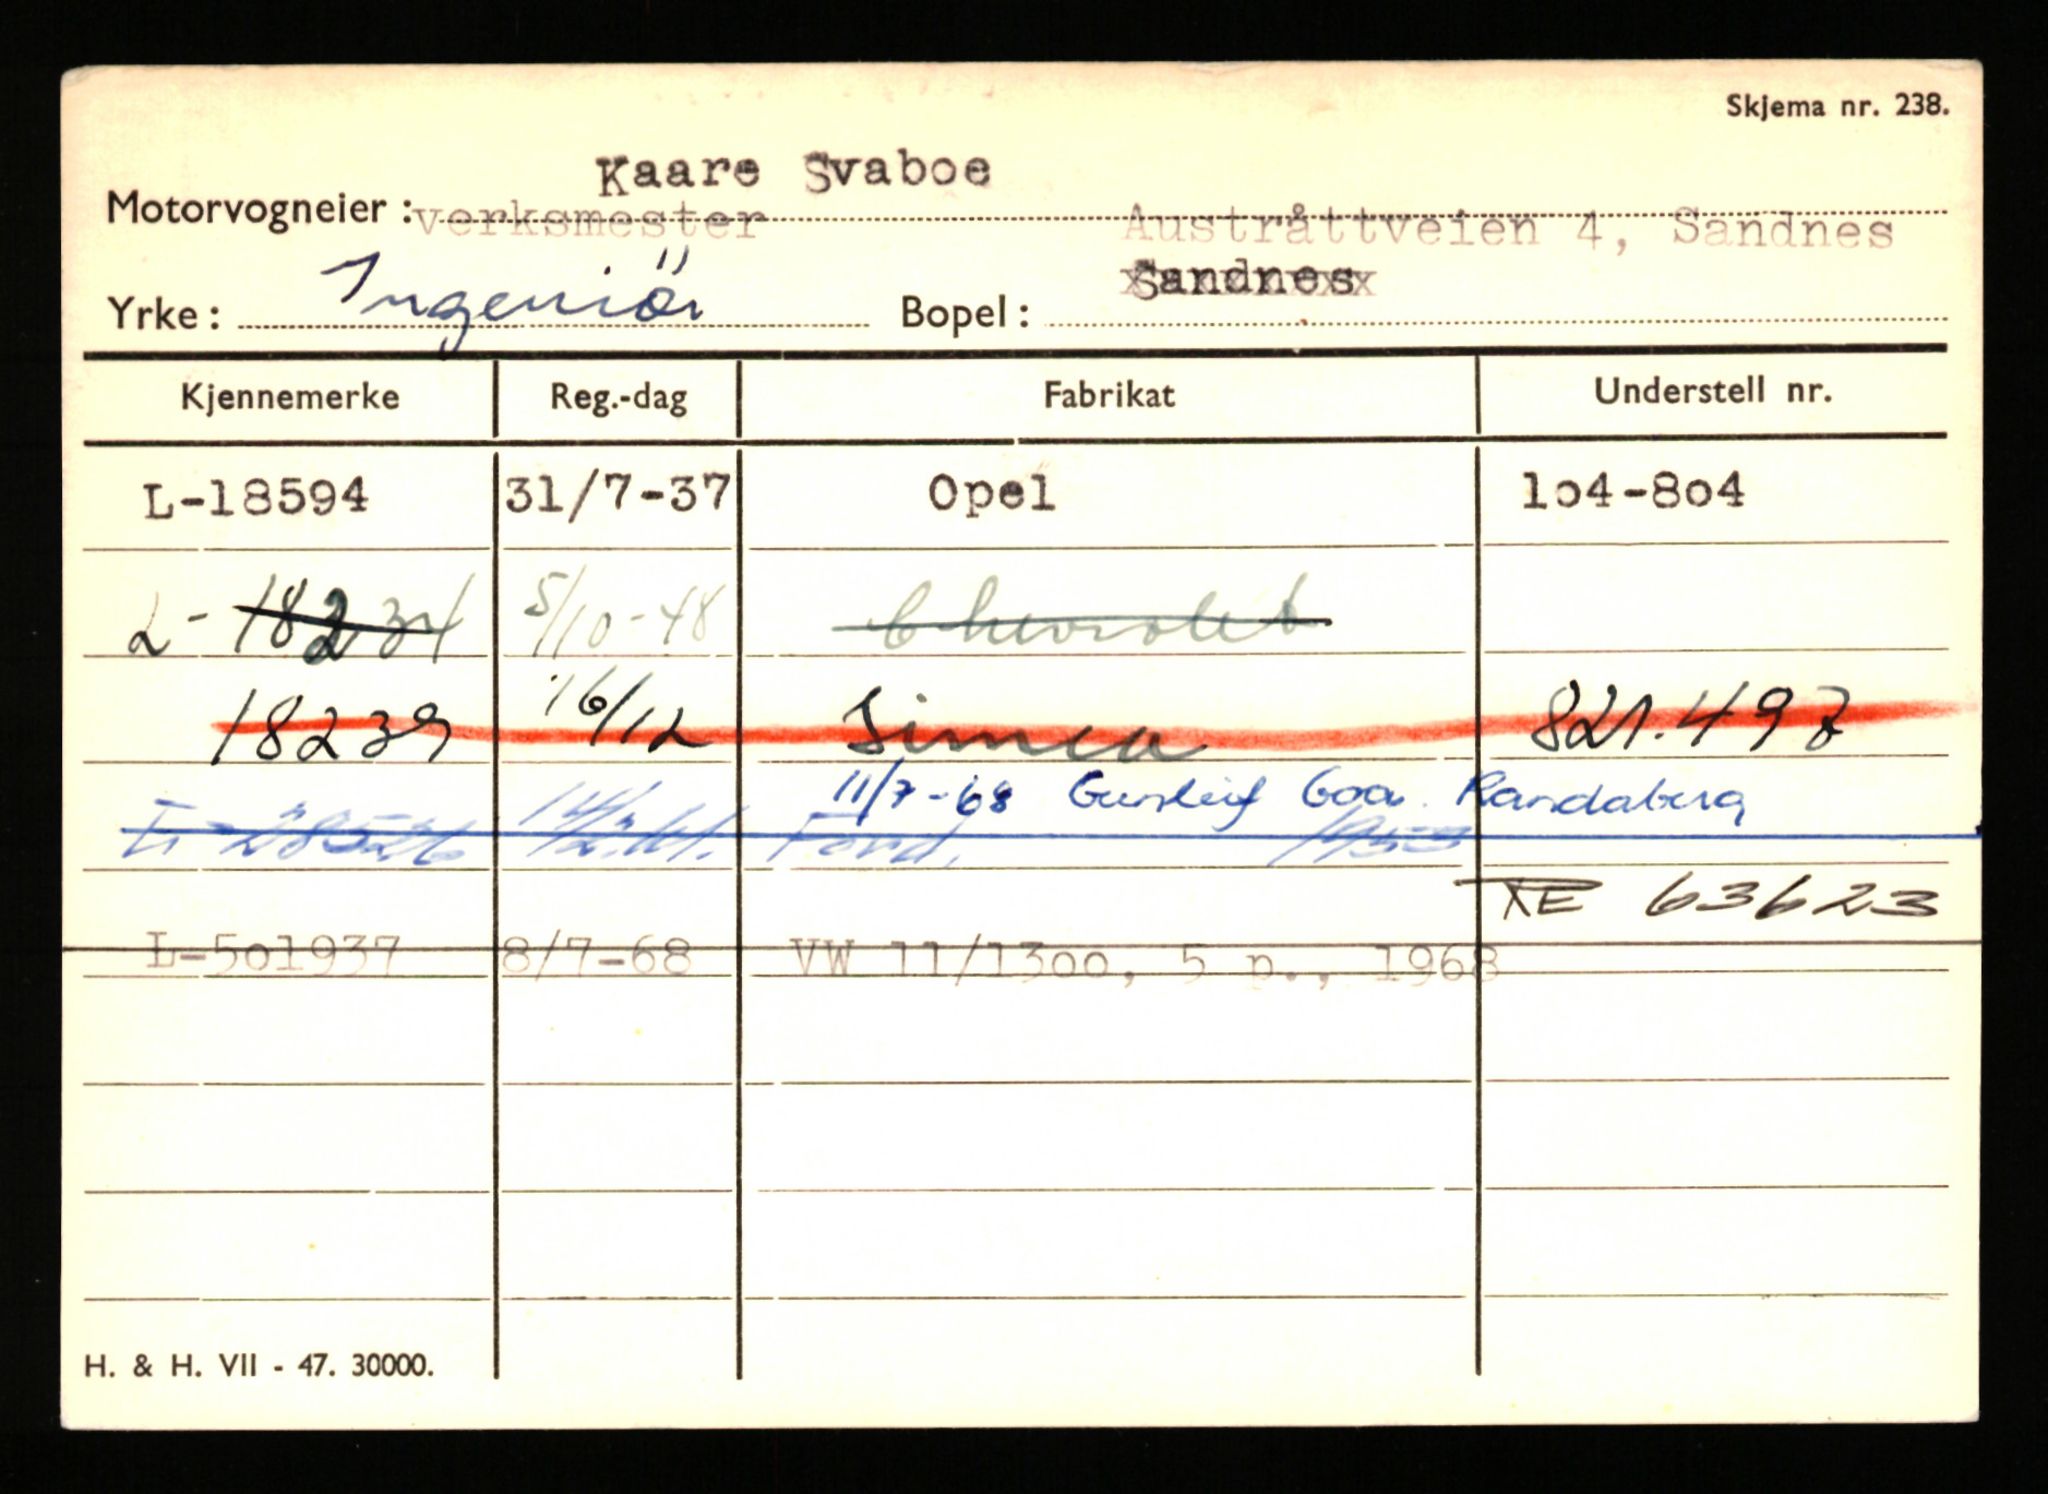 Skjema nr. 238.
Kaare Svaboe
Motorvogneier: verksmester Austråttveien 4, Sandnes
Sandnes
Yrke: Ingeniör Bopel:
Kjennemerke Reg.-dag Fabrikat Understell nr.
L-18594 31/7-37 Opel 1o4-8o4
L-18234 5/10-48 Chevrolet
18239 16/12 Simca 821.497
11/7-68 Gunleif Goa. Randaberg
L-28526 Ford. 1953
XE 63623
L-5o1937 8/7-68 VW 11/13oo, 5 p., 1968
H. & H. VII - 47. 30000.